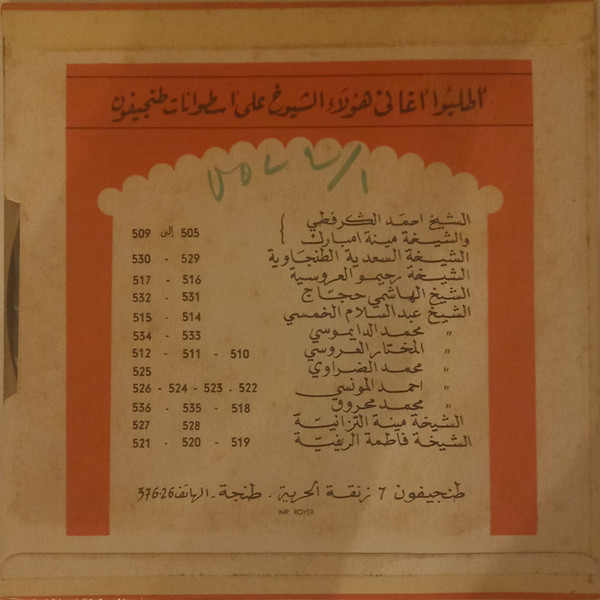 اطلبوا اغاني هؤلاء الشيوخ على اسطوانات طنجيفون
الشيخ احمد الكرفطي
والشيخة مينة امبارك } 505 إلى 509
الشيخة السعدية الطنجاوية 529 - 530
الشيخة رحيمو العروسية 516 - 517
الشيخ الهاشمي حجاج 531 - 532
الشيخ عبد السلام الخمسي 514 - 515
" محمد الدايموسي 533 - 534
" المختار العروسي 510 - 511 - 512
" محمد الضراوي 525
" احمد المونسي 522 - 523 - 524 - 526
" محمد محروق 518 - 535 - 536
الشيخة مينة التزانية 528 527
الشيخة فاطمة الريفية 519 - 520 - 521
طنجيفون 7 زنقة الحرية - طنجة - الهاتف 376-26
IMP. ROYER